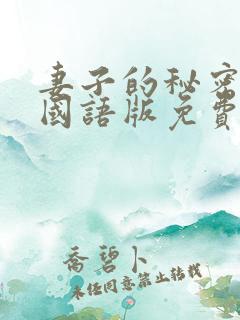 妻子的秘密
國語版免費
喬碧卜
未经同意禁止转载